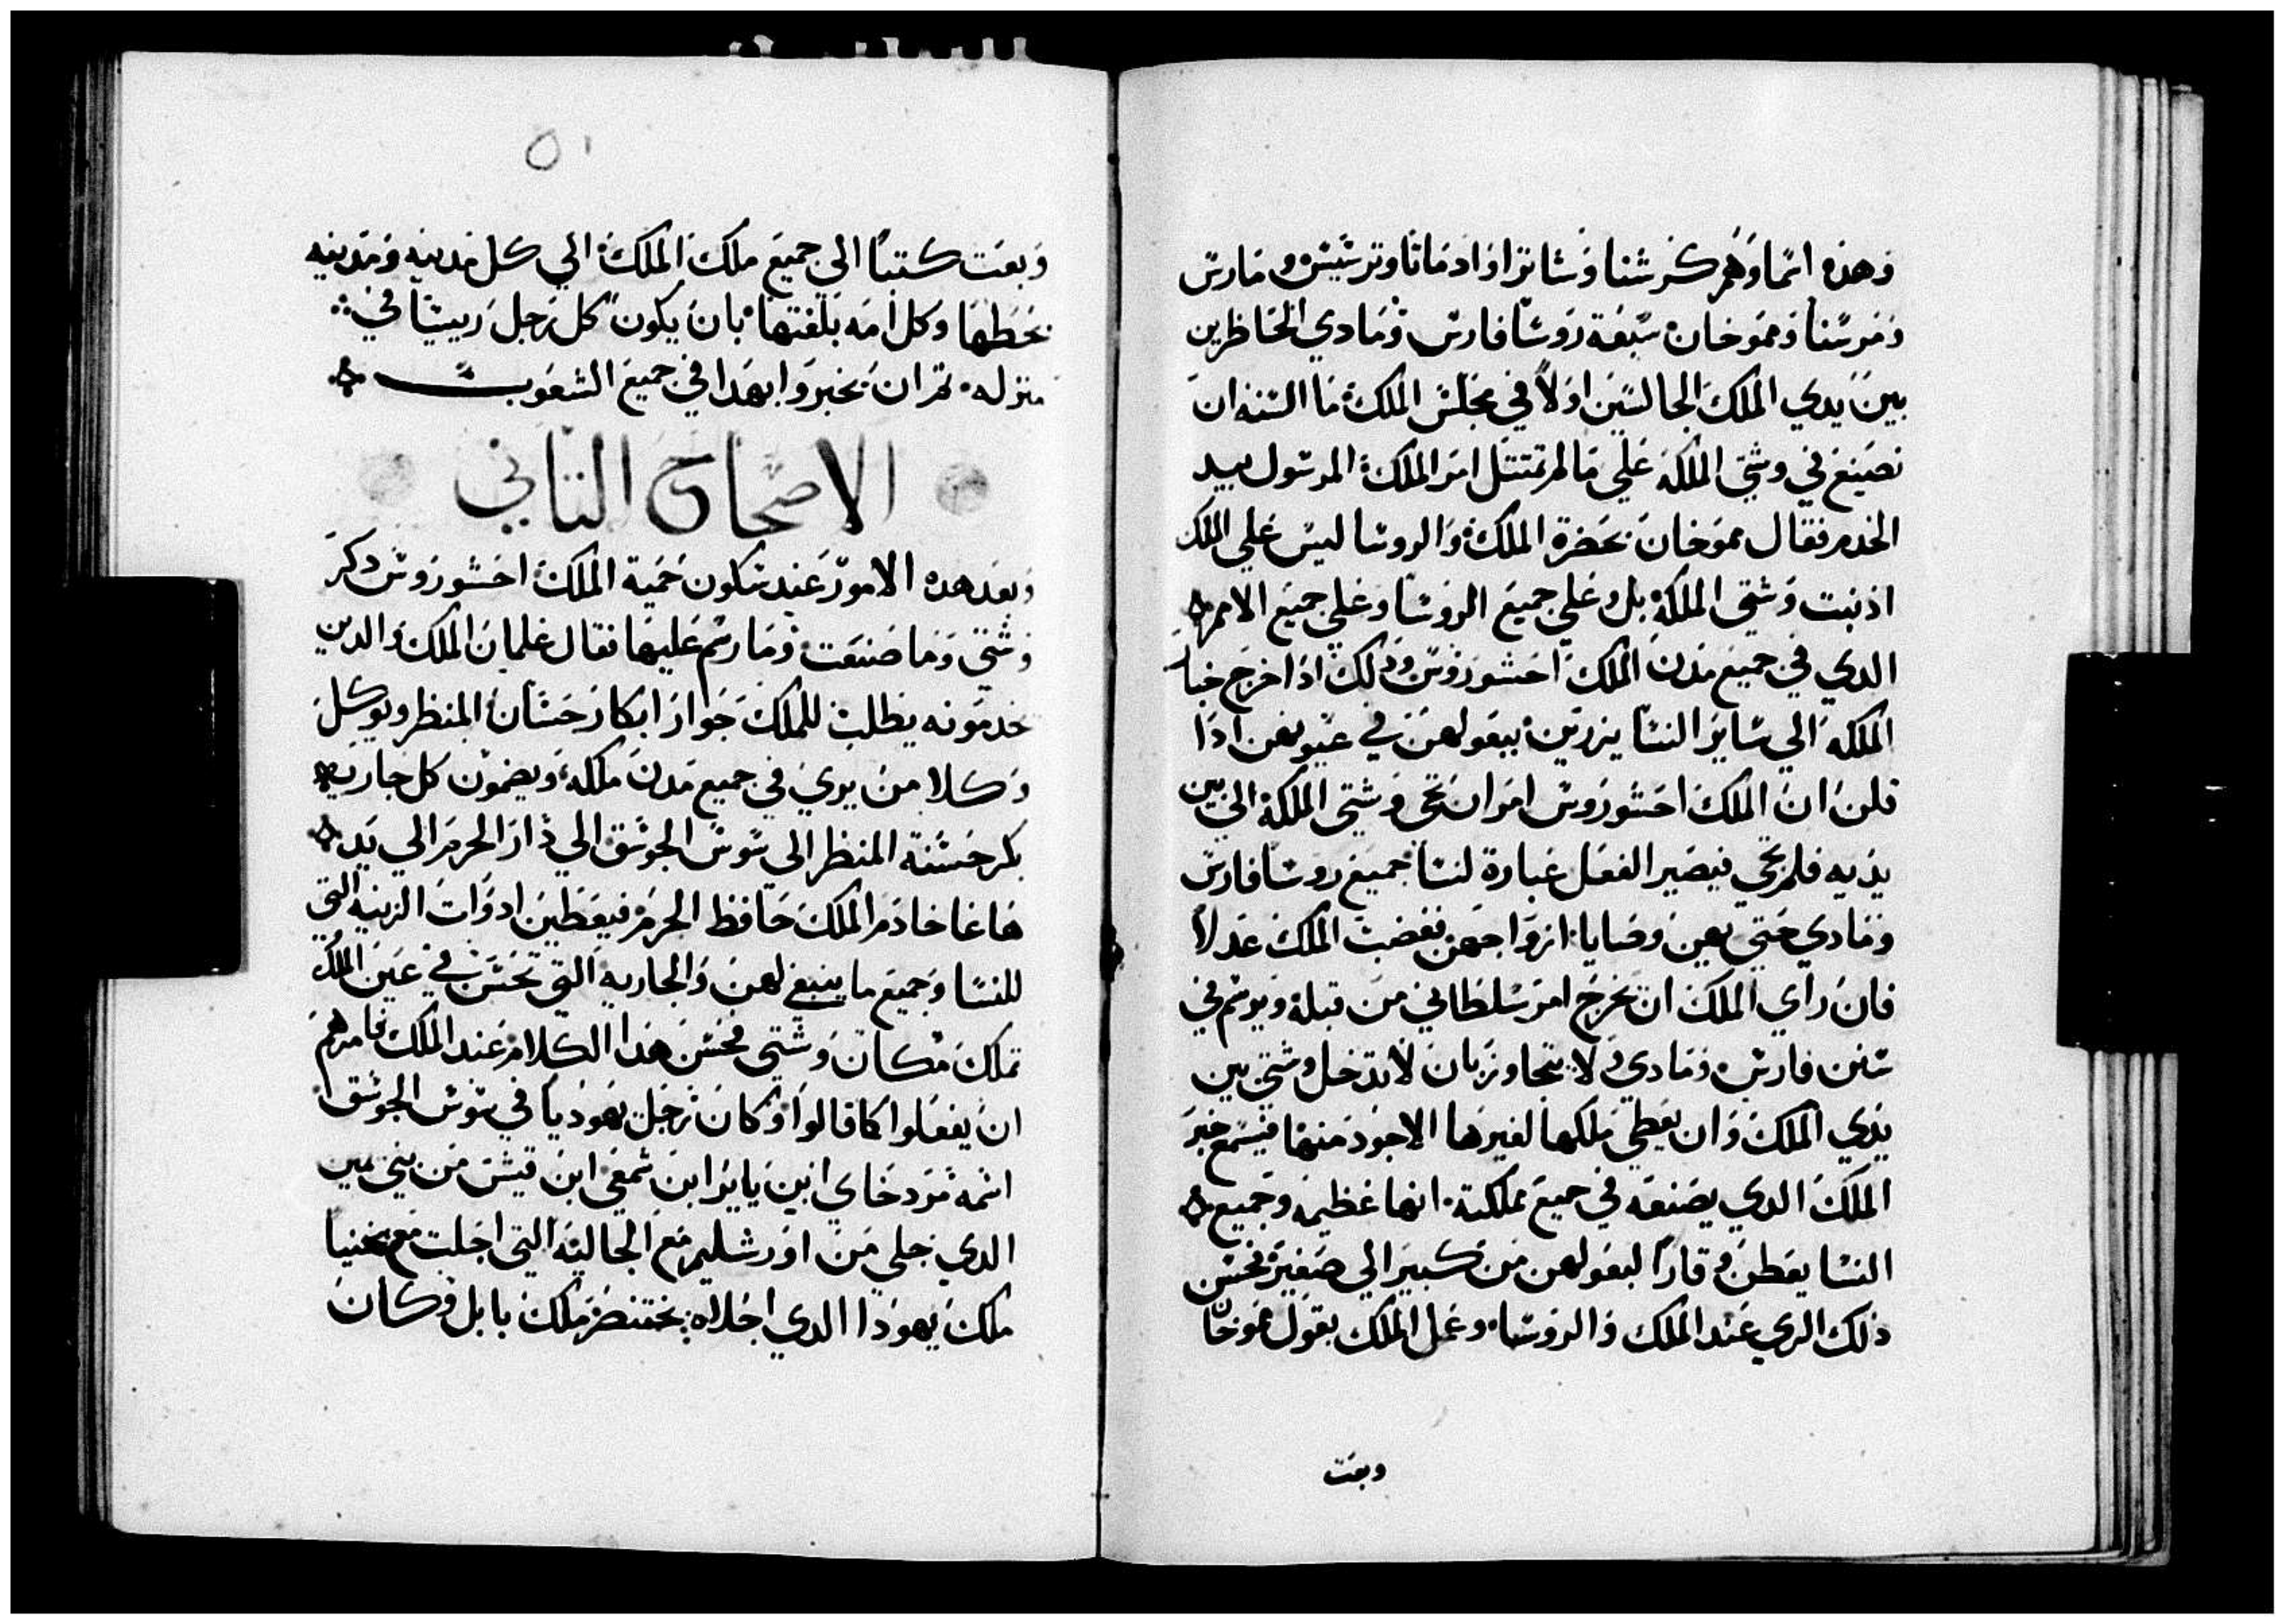 وهذه اسما وهم كرشنا وشاترا وادماتا وترشيش ومارس
ومرسنا ومموخان سبعة روسا فارس ومادي الحاظرين
بين يدي الملك الجالسين اولاً في مجلس الملك ما السنه ان
نصنع في وشتي الملكه علي ما لم تمتثل امر الملك المرسول بيد
الخدم فقال مموخان بحضرة الملك والروسا ليس علي الملك
اذنبت وشتي الملكة بل وعلي جميع الروسا وعلي جميع الامم
الدي في جميع مدن الملك احشوروش ودلك اذا خرج خبر
الملكه الي ساير النسا يزرين ببعولهن في عيونهن اذا
قلن ان الملك احشوروش امر ان تجي وشتي الملكة الي بين
يديه فلم تجي فيصير الفعل عبارة لنسا جميع روسا فارس
ومادي حتي يهين وصايا ازواجهن فغضب الملك عدلاً
فان راي الملك ان يخرج امر سلطاني من قبله ويرسم في
سنن فارس ومادي ولا يتجاوز بان لا تدخل وشتي بين
يدي الملك وان يعطي ملكها لغيرها الاجود منها فيسمع خبر
الملك الدي يصنعه في جميع مملكته انها عظيمه وجميع
النسا يعطن وقاراً لبعولهن من كبير الي صغير فحسن
ذلك الري عند الملك والروسا وعمل الملك بقول مموخان
وبعت
٥١
وبعت كتباً الي جميع ملك الملك الي كل مدينه ومدينه
بخطها وكل امه بلغتها بان يكون كل رجل رييساً في
منزله تم ان يخبروا بهدا في جميع الشعوب
الاصحاح التاني
وبعد هده الامور عند سكون حمية الملك احشوروش دكر
وشتي وما صنعت وما رسم عليها فقال غلمان الملك والدين
خدمونه يطلب للملك جوار ابكار حسان المنظر ويوكل
وكلا من يري في جميع مدن ملكه ويضمون كل جاريه
بكر حسنة المنظر الي سوس الجوسق الي دار الحرم الي يد
هاغا خادم الملك حافظ الحرم فيعطين ادوات الزينه التي
للنسا وجميع ما ينبغي لهن والجاريه التي تحسن في عين الملك
تملك مكان وشتي فحسن هدا الكلام عند الملك فامرهم
ان يفعلوا كما قالوا وكان رجل يهوديا في سوس الجوسق
اسمه مردخاي ابن ياير ابن شمعي ابن قيش من بني يمين
الدي جلي من اورشليم مع الجاليه التي اجلت مع يخنيا
ملك يهودا الدي اجلاه بختنصر ملك بابل وكان